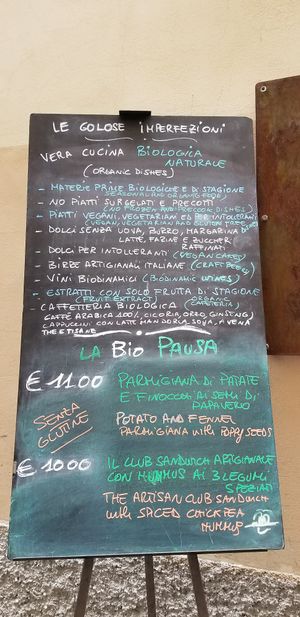 LE GOLOSE IMPERFEZIONI
VERA CUCINA BIOLOGICA
NATURALE
(ORGANIC DISHES)
- MATERIE PRIME BIOLOGICHE E DI STAGIONE
- NO PIATTI SURGELATI E PRECOTTI
(NO FROZEN AND PRECOOK DISHES)
- PIATTI VEGANI, VEGETARIANI ED PER INTOLLERANTI
(VEGAN, VEGETARIAN AND GLUTEN FREE)
- DOLCI SENZA UOVA, BURRO, MARGARINA
LATTE, FARINE E ZUCCHERI
RAFFINATI
- DOLCI PER INTOLLERANTI (VEGAN CAKES)
- BIRRE ARTIGIANALI ITALIANE (CRAFT BEERS)
- VINI BIODINAMICI (BIODINAMIC WINES)
- ESTRATTI CON SOLO FRUTTA DI STAGIONE
(FRUIT EXTRACT) (ORGANIC
- CAFFETTERIA BIOLOGICA CAFETERIA)
CAFFÈ ARABICA 100%, CICORIA, ORZO, GINSENG)
CAPPUCCINI CON LATTE MANDORLA, SOYA, AVENA
THE E TISANE
LA BIO PAUSA
€ 11.00 PARMIGIANA DI PATATE
E FINOCCHI AI SEMI DI
PAPAVERO
SENZA
GLUTINE
POTATO AND FENNEL
PARMIGIANA WITH POPPY SEEDS
€ 10.00 IL CLUB SANDWICH ARTIGIANALE
CON HUMMUS AI 3 LEGUMI
SPEZIATI
THE ARTISAN CLUB SANDWICH
WITH SPICED CHICKPEA
HUMMUS